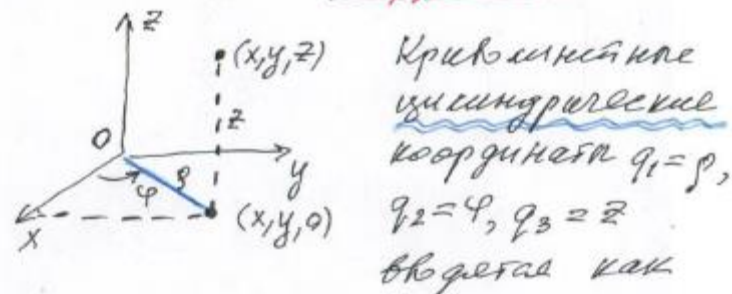 z
(x,y,z)
z
O
y
φ
ρ
x
(x,y,0)
Криволинейные
цилиндрические
координаты q₁=ρ,
q₂=φ, q₃=z
вводятся как